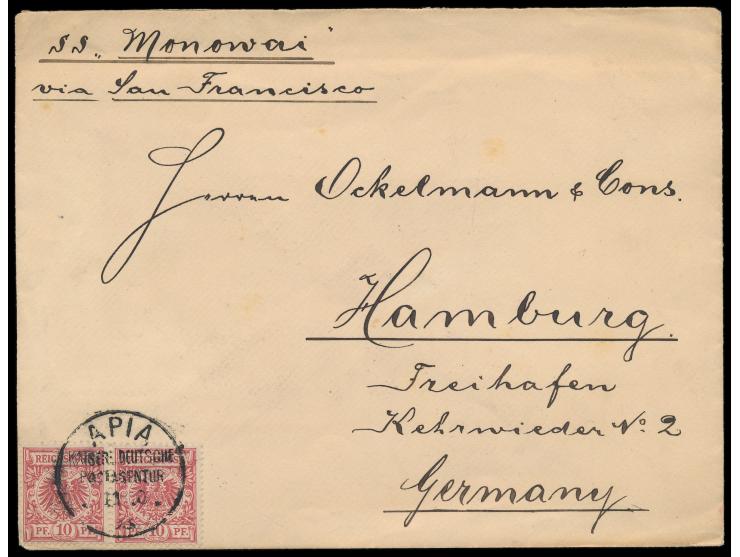 SS. "Monowai"
via San Francisco
Herren Ockelmann & Cons.
Hamburg.
Freihafen
Kehrwieder No. 2
Germany
APIA
KAISERL. DEUTSCHE
POSTAGENTUR
REICHSPOST
PF. 10 PF.
10 PF.